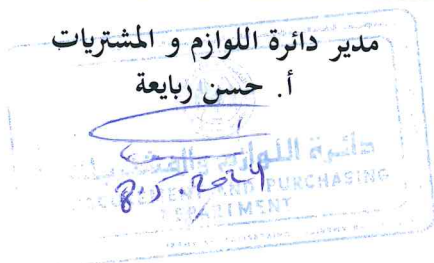 مدير دائرة اللوازم و المشتريات
أ. حسن ربايعة
دائرة اللوازم
8.5.2024
AND PURCHASING
DEPARTMENT